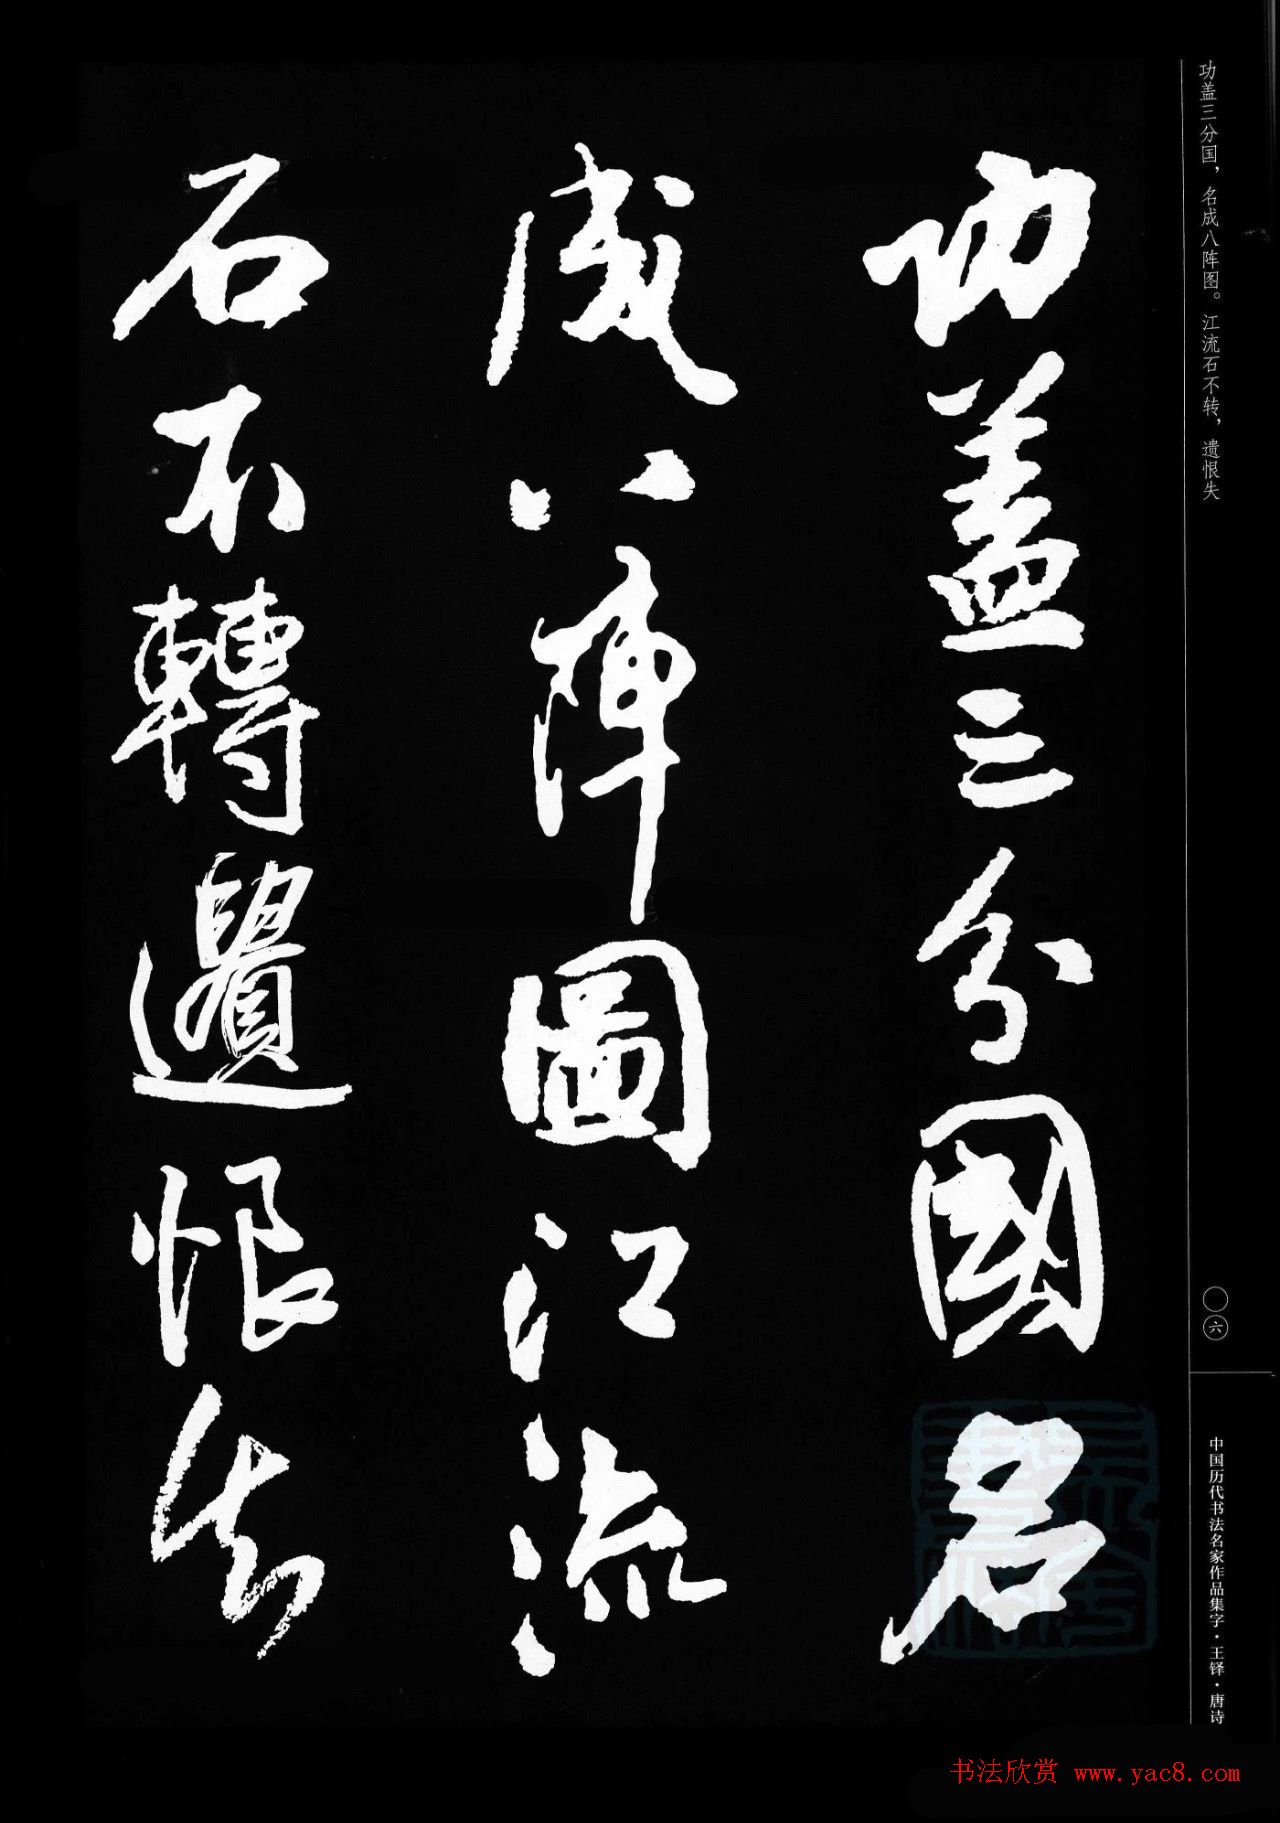 功蓋三分國名
成八陣圖江流
石不轉遺恨失
功盖三分国，名成八阵图。江流石不转，遗恨失
〇六
中国历代书法名家作品集字·王铎·唐诗
书法欣赏 www.yac8.com